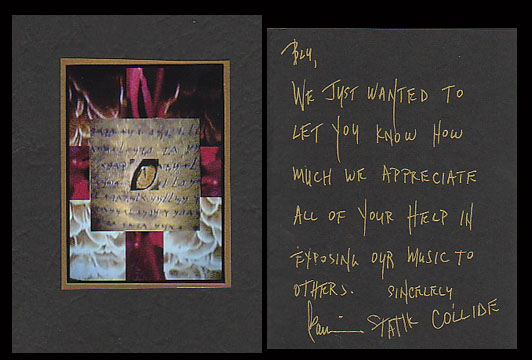 Blu,
WE JUST WANTED TO
LET YOU KNOW HOW
MUCH WE APPRECIATE
ALL OF YOUR HELP IN
EXPOSING OUR MUSIC TO
OTHERS. SINCERELY
STATIK COLLIDE